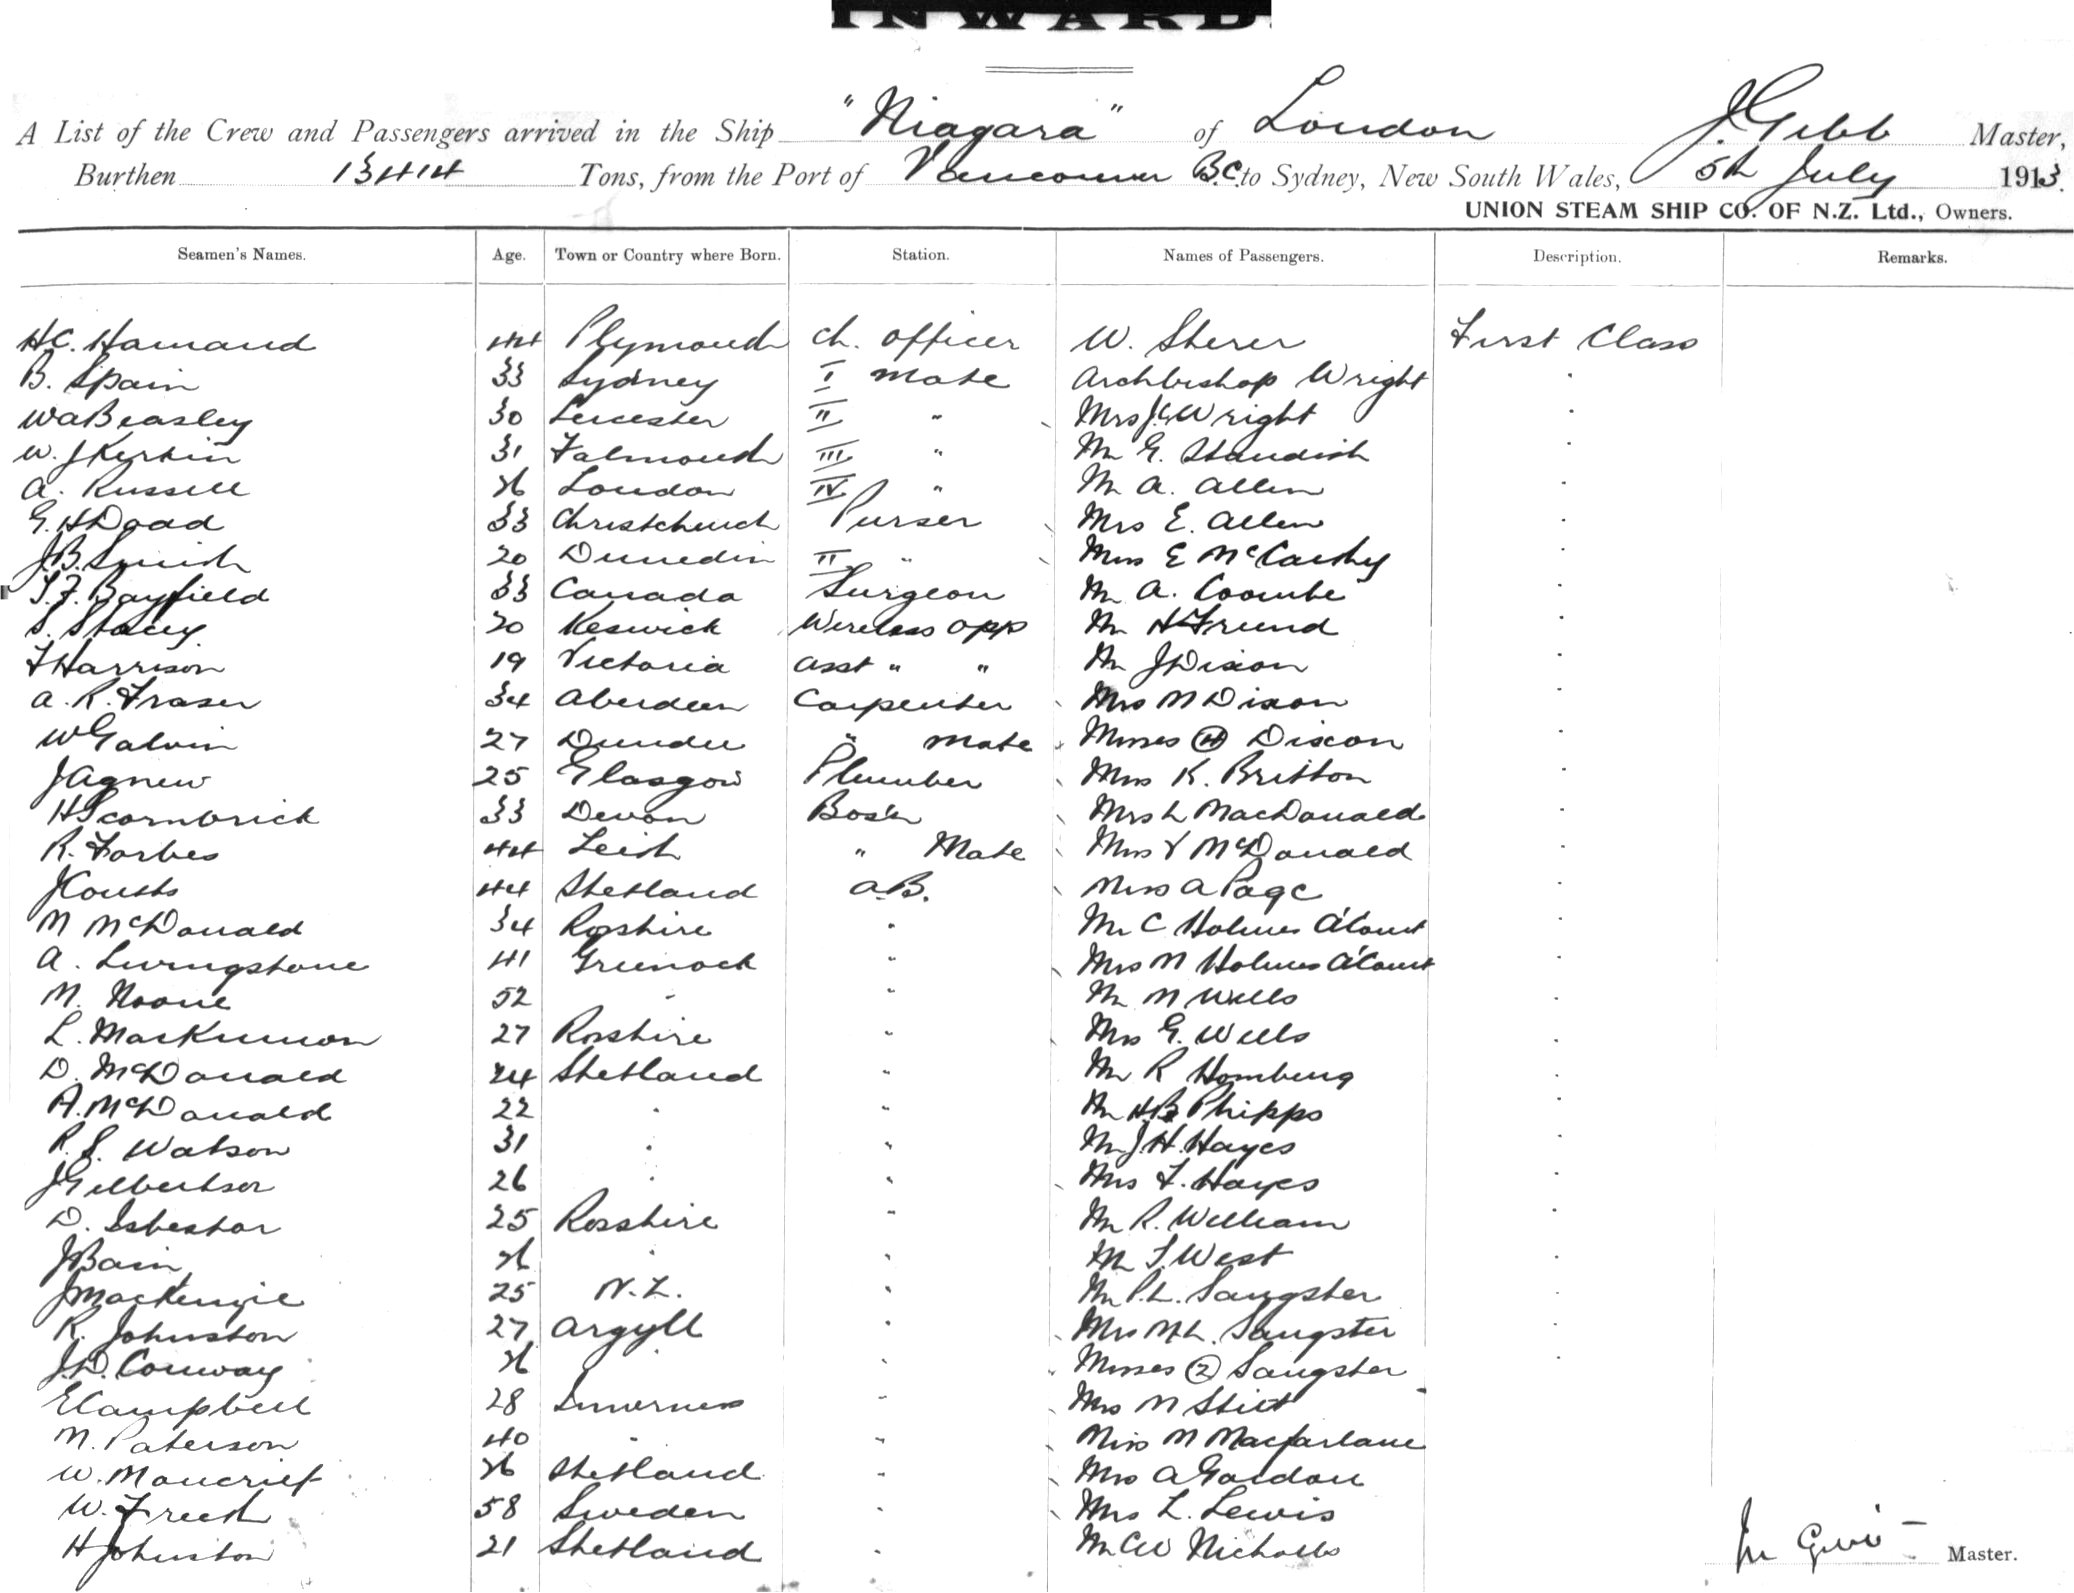 INWARD
A List of the Crew and Passengers arrived in the Ship "Niagara" of London J. Gibb Master,
Burthen 13414 Tons, from the Port of Vancouver B.C. to Sydney, New South Wales, 5th July 1913.
UNION STEAM SHIP CO. OF N.Z. Ltd., Owners.
Seamen's Names. Age. Town or Country where Born. Station. Names of Passengers. Description. Remarks.
H.C. Hamand 44 Plymouth Ch. Officer W. Sherer First Class
B. Spain 33 Sydney I Mate Archbishop Wright "
W A Beasley 30 Leicester II " Mrs J. Wright "
W. J 31 Falmouth III " Mr G. Standish "
A. Russell 26 London IV " Mr A. Allen "
G. H Doad 33 Christchurch Purser Mrs E. Allen "
J.B. Smith 20 Dunedin II " Miss E McCarthy "
T.F. Bayfield 33 Canada Surgeon Mr A. Coombe "
S. Stacey 20 Keswick Wireless Opp Mr H Freund "
F Harrison 19 Victoria Asst " " Mr J Dixon "
A. R. Fraser 34 Aberdeen Carpenter Mrs M Dixon "
W Galvin 27 Dundee " Mate Misses (4) Dixon "
J Agnew 25 Glasgow Plumber Miss K. Britton "
H Scornbrick 33 Devon Bos'n Mrs L MacDonald "
R. Forbes 44 Leith " Mate Miss V McDonald "
J Coutts 44 Shetland A.B. Miss A Page "
M McDonald 34 Rosshire " Mr C Holmes A'Court "
A. Livingstone 41 Greenock " Mrs M Holmes A'Court "
M. Noone 52 " " Mr M Wells "
L. MacKinnon 27 Rosshire " Mrs G. Wells "
D. McDonald 24 Shetland " Mr R Homburg "
A. McDonald 22 " " Mr H B Phipps "
R. S. Watson 31 " " Mr J. H. Hayes "
J Gilbertson 26 " " Mrs F. Hayes "
D. Isbestor 25 Rosshire " Mr R. William "
J Bain 26 " " Mr T. West "
J MacKenzie 25 N.Z. " Mr P.L. Sangster "
R. Johnston 27 Argyll " Mrs M.L. Sangster "
J.D. Conway 26 " " Misses (2) Sangster "
E Campbell 28 Inverness " Mrs M Stitt
M. Paterson 40 " " Miss M Macfarlane
W. Moncrief 26 Shetland " Mrs A Gordon
W. 58 Sweden " Mrs L. Lewis
H Johnston 21 Shetland " Mr C W Nicholls
Master.